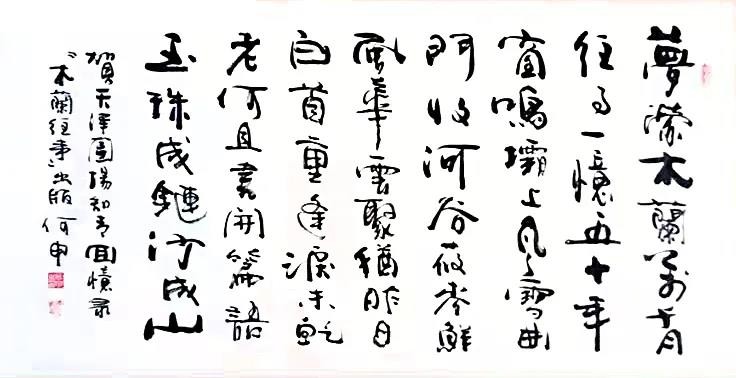 夢 木蘭 月
往事一憶五十年
窗鳴壩上風雪曲
門收河谷莜麥鮮
風華雲聚猶昨日
白首重逢淚未乾
老何且書開篇語
玉珠成鏈沙成山
賀天澤圍場知青回憶录
“木蘭往事”出版 何申